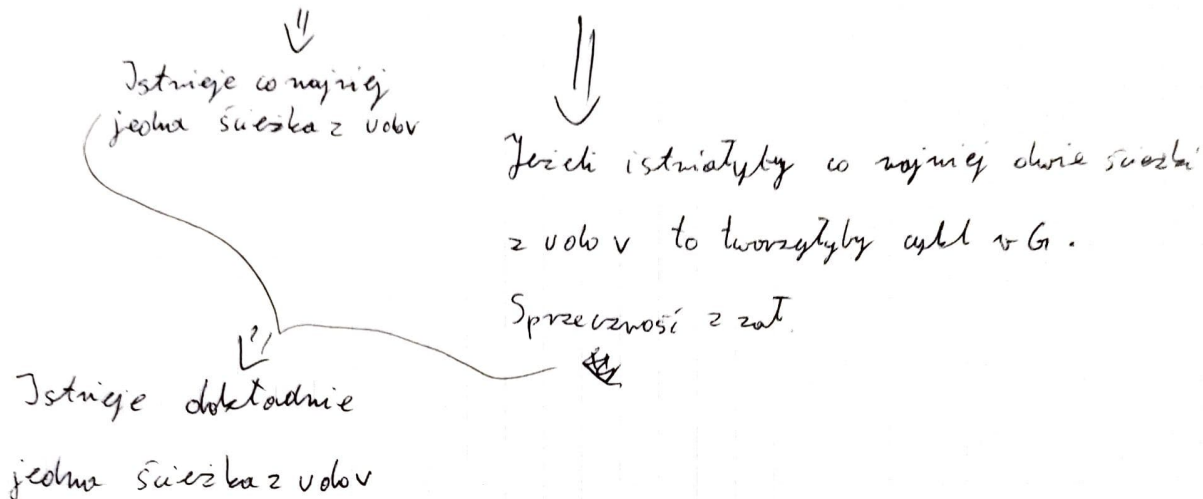 Istnieje co najniej
jedna ścieżka z u do v
Jeżeli istniałyby co najmniej dwie ścieżki
z u do v to tworzyłyby cykl w G.
Sprzeczność z zał.
Istnieje dokładnie
jedna ścieżka z u do v